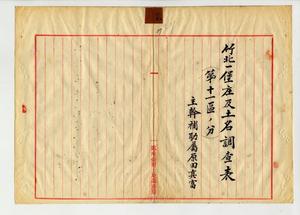 竹北一堡庄及土名調查表
(第十一區ノ分)
主幹補助屬原田真富